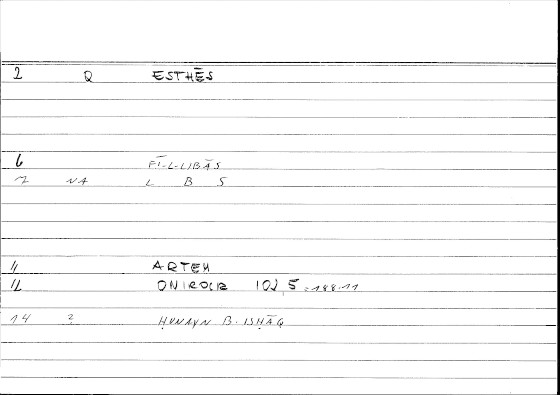 2 Q ESTHĒS
6 FĪ-L-LIBĀS
7 NA L B S
11 ARTEM
12 ONIROCR 102,5 = 188.11
14 2 ḤUNAYN B. ISḤĀQ